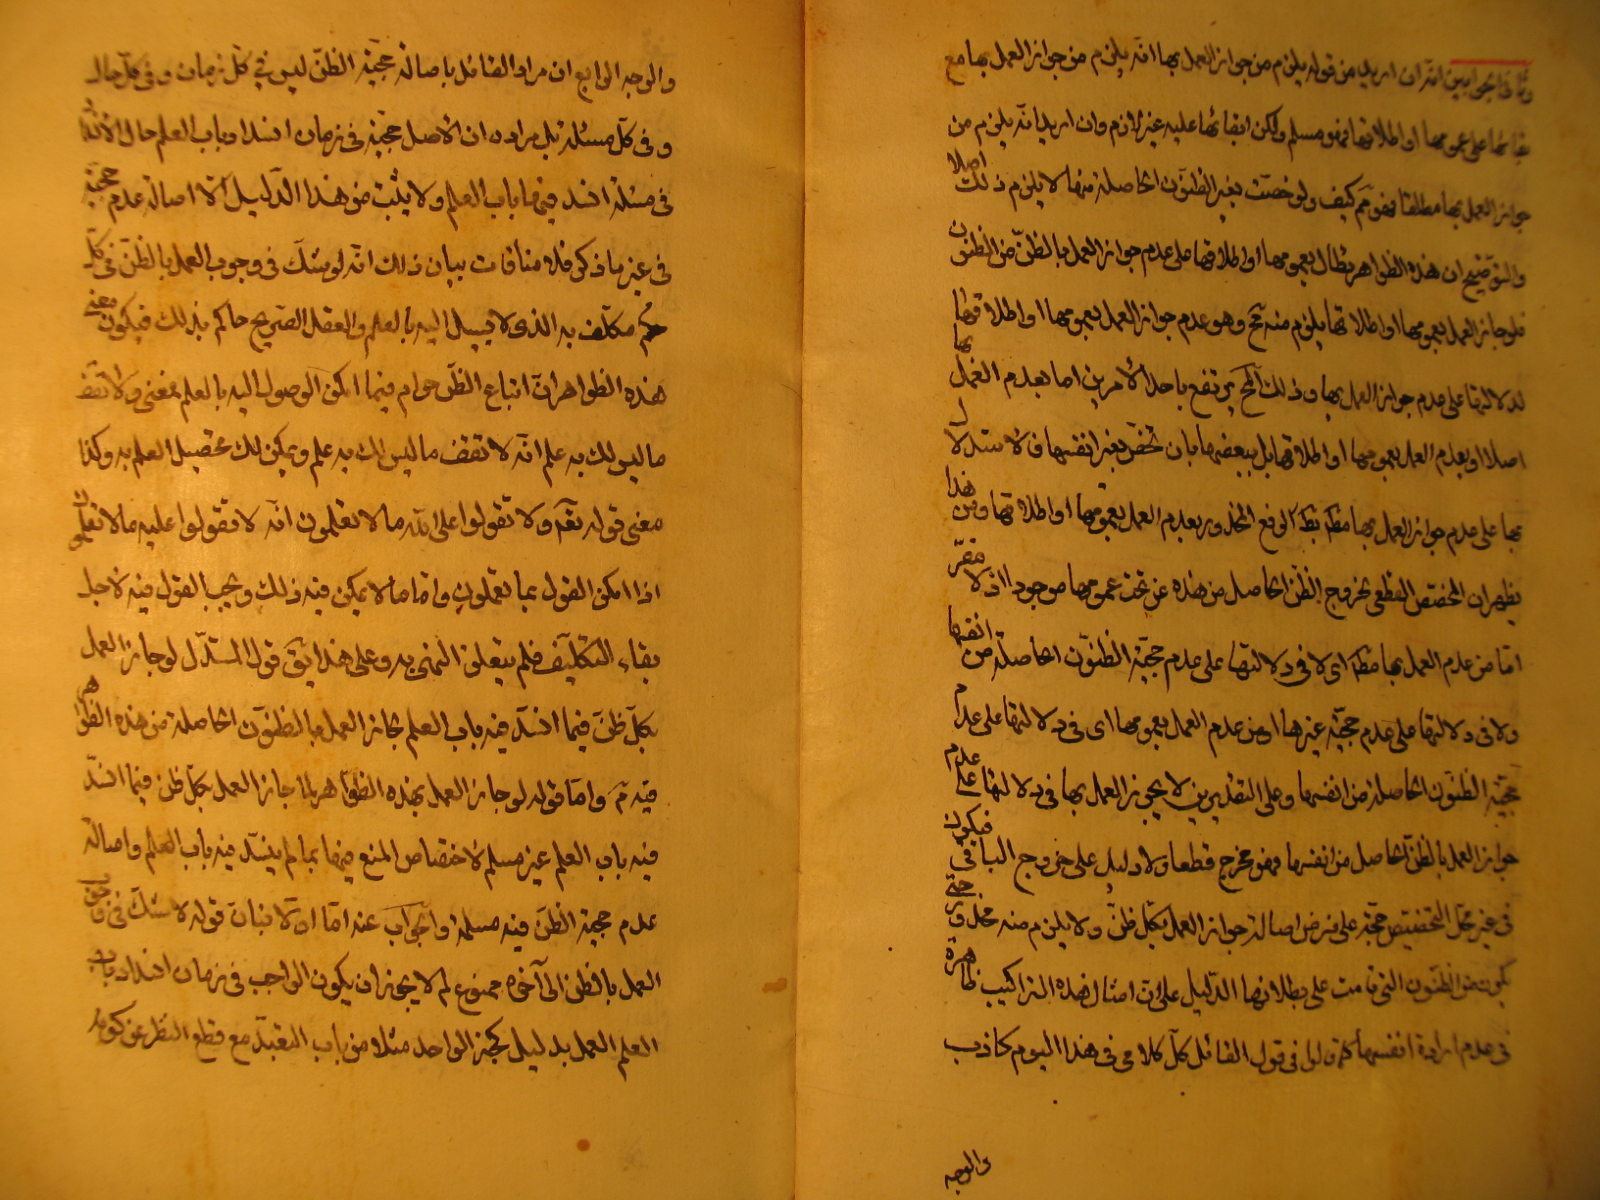 وثالثا نجيب بين انه ان اريد من قوله يلزم من جواز العمل بها انه يلزم من جواز العمل بها مع
بقائها على عمومها او اطلاقها فهو مسلم ولكن ابقائها عليه غير لازم وان اريد انه يلزم من
جواز العمل بها مطلقا فهو مم كيف ولو خصت بغير الظنون الحاصلة منها لا يلزم ذلك اصلا
والتوضيح ان هذه الظواهر بعمومها او اطلاقها على عدم جواز العمل بالظن من الظنون
فلو جاز العمل بعمومها او اطلاقها يلزم منه مح وهو عدم جواز العمل بعمومها او اطلاقها
لدلالتها على عدم جواز العمل بها وذلك المح يرتفع باحد الامرين اما بعدم العمل بها
اصلا او بعدم العمل بعمومها او اطلاقها بل ببعضها بان تخص بغير انفسها فالاستدلال
بها على عدم جواز العمل بها مطلقا لوقع المحذور بعدم العمل بعمومها او اطلاقها ومن هذا
يظهر ان المخصص القطعى لخروج الظن الحاصل من هذه عن تحت عمومها موجود اذ لا مفر
اما من عدم العمل بها مطلقا اى لا فى دلالتها على عدم حجية الظنون الحاصلة من انفسها
ولا فى دلالتها على عدم حجية غيرها او من عدم العمل بعمومها اى فى دلالتها على عدم
حجية الظنون الحاصلة من انفسها وعلى التقديرين لا يجوز العمل بها فى دلالتها على عدم
جواز العمل بالظن الحاصل من انفسها فهو مخرج قطعا ولا دليل على خروج الباقى فيكون
فى غير محل التخصيص حجة على فرض اصالة جواز العمل بكل ظن ولا يلزم منه محذور حتى
يكون من الظنون التى قامت على بطلانها الدليل على ان امثال هذه التراكيب ظاهرة
فى عدم ارادة انفسها كما قالوا فى قول القائل كل كلامى فى هذا اليوم كاذب
والوجه
والوجه الرابع ان مراد القائل باصالة حجية الظن ليس فى كل زمان وفى كل حال
وفى كل مسئلة بل مراده ان الاصل حجيته فى زمان انسداد باب العلم حال الانسداد
فى مسئلة انسد فيها باب العلم ولا يثبت من هذا الدليل الا اصالة عدم حجيته
فى غير ما ذكر فلا منافات بيان ذلك انه لو شك فى وجوب العمل بالظن فى كل
حكم مكلف به الذى لا سبيل اليه بالعلم والعقل الصريح حاكم بذلك فيكون معنى
هذه الظواهر ان اتباع الظن حرام فيما امكن الوصول اليه بالعلم فمعنى ولا تقف
ما ليس لك به علم انه لا تقف ما ليس لك به علم ويمكن لك تحصيل العلم به وكذا
معنى قوله تعه ولا تقولوا على الله ما لا تعلمون انه لا تقولوا عليه ما لا تعلمون
اذا امكن القول بما تعلمون واما ما لا يمكن فيه ذلك ويجب القول فيه لاجل
بقاء التكليف فلم يتعلق النهى به وعلى هذا يق قول المستدل لو جاز العمل
بكل ظن فيما انسد فيه باب العلم لجاز العمل بالظنون الحاصلة من هذه الظواهر
فيه مم واما قوله لو جاز العمل بهذه الظواهر لما جاز العمل بكل ظن فيما انسد
فيه باب العلم غير مسلم لاختصاص المنع فيها بما لم ينسد فيه باب العلم واصالة
عدم حجية الظن فيه مسلمة والجواب عنه اما اولا فبان قوله لا شك فى وجوب
العمل بالظن الى آخره ممنوع لم لا يجوز ان يكون الواجب فى زمان انسداد باب
العلم العمل بدليل كخبر الواحد مثلا من باب التعبد مع قطع النظر عن كونه